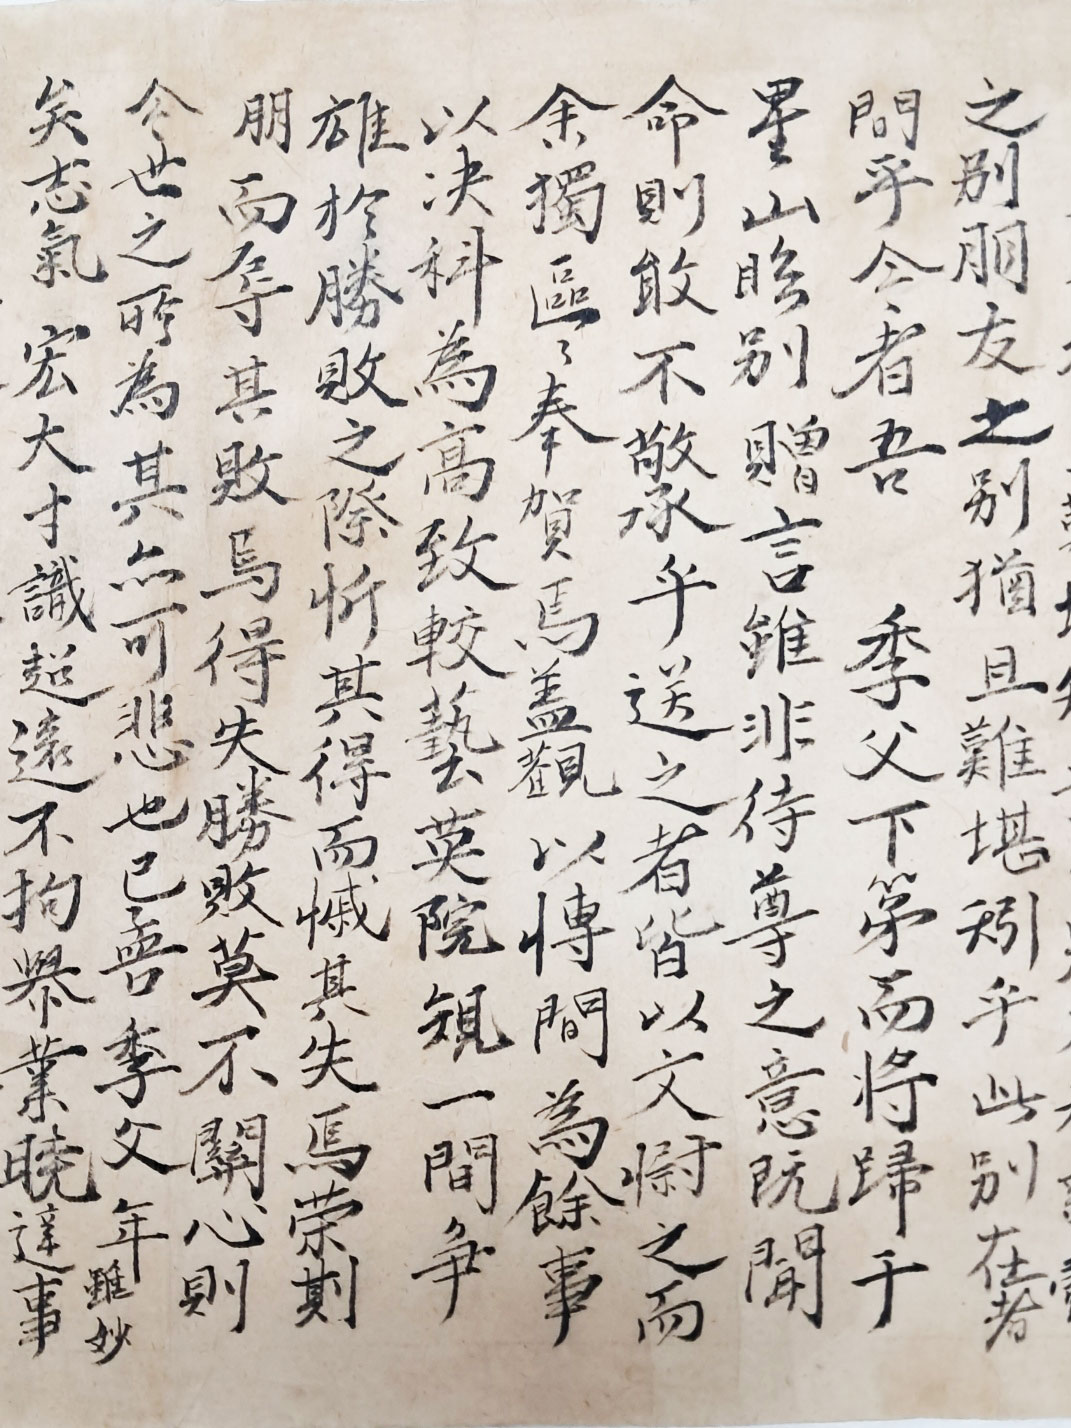 之别朋友之别猶且難堪矧乎此别在者
問乎今者吾季父下第而將歸于
星山臨别贈言雖非待尊之意旣聞
命則敢不敬承乎送之者皆以文慰之而
余獨區〻奉賀焉盖觀以博間為餘事
以决科為高致較藝英院覌一間爭
雄於勝敗之際忻其得而慽其失焉荣則
朋而辱其敗焉得失勝敗莫不關心則
今世之所為其亦可悲也已吾季父年雖妙
矣志氣宏大才識超遠不拘擧業曉達事